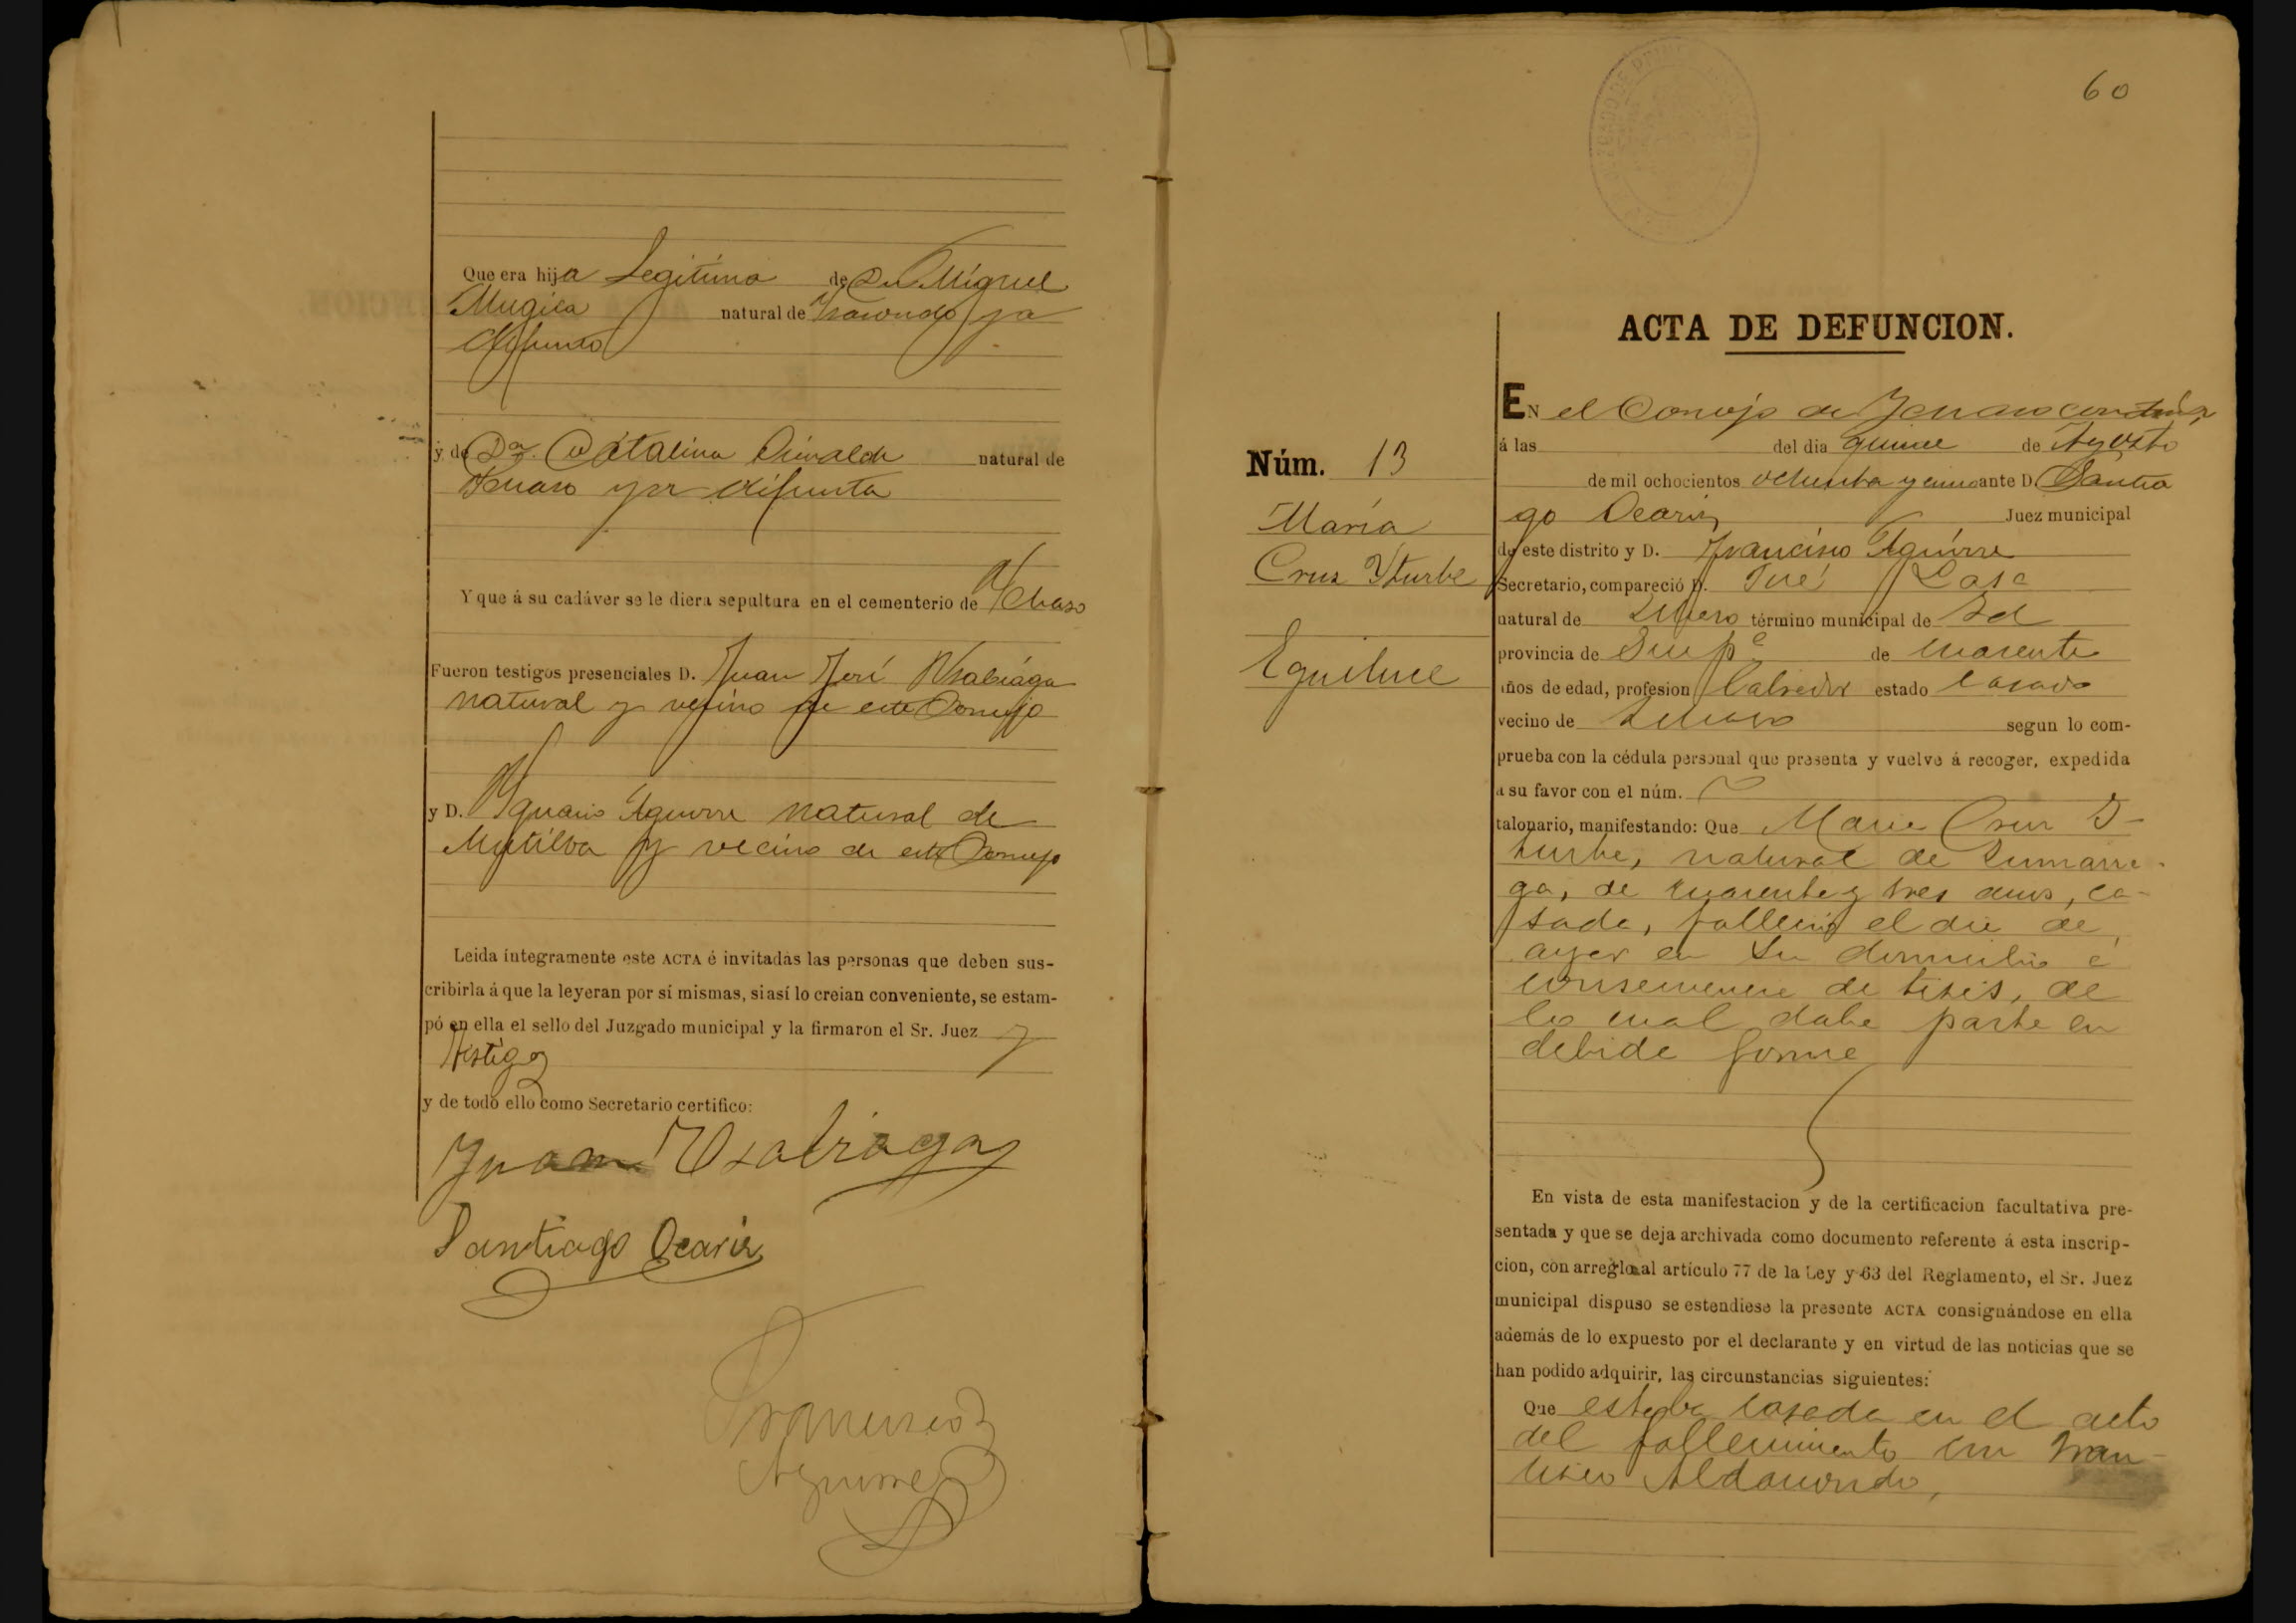 Que era hija Legitima de Dn Miguel
Mugica natural de Ysasondo ya
difunto
y de Da. Catalina natural de
ya difunta
Y que á su cadáver se le diera sepultura en el cementerio de
Fueron testigos presenciales D. Juan José Usabiaga
natural y vecino de este Concejo
y D. Ygnacio Aguirre natural de
Mutiloa y vecino de este Concejo
Leida íntegramente este ACTA é invitadas las personas que deben sus-
cribirla á que la leyeran por sí mismas, si así lo creian conveniente, se estam-
pó en ella el sello del Juzgado municipal y la firmaron el Sr. Juez y
testigos
y de todo ello como Secretario certifico:
Juan Usabiaga
Santiago Ocariz
Francisco
Aguirre
60
ACTA DE DEFUNCION.
Núm. 13
María
Cruz Yturbe
EN el Concejo de
á las del dia quince de Agosto
de mil ochocientos ochenta y cinco ante D. Santia
go Ocariz Juez municipal
de este distrito y D. Francisco Aguirre
Secretario, compareció D. José Lasa
natural de término municipal de id
provincia de Guip.a de cuarenta
años de edad, profesion labrador estado casado
vecino de segun lo com-
prueba con la cédula personal que presenta y vuelve á recoger, expedida
a su favor con el núm.
talonario, manifestando: Que Maria Cruz I-
turbe, natural de Zumarra-
ga, de cuarenta y tres años, ca-
sada, falleció el dia de
ayer en su domicilio á
consecuencia de tisis, de
lo cual daba parte en
debida forma
En vista de esta manifestacion y de la certificacion facultativa pre-
sentada y que se deja archivada como documento referente á esta inscrip-
cion, con arreglo al artículo 77 de la Ley y 63 del Reglamento, el Sr. Juez
municipal dispuso se estendiese la presente ACTA consignándose en ella
además de lo expuesto por el declarante y en virtud de las noticias que se
han podido adquirir, las circunstancias siguientes:
Que estaba casada en el acto
del fallecimiento con Fran-
cisco Aldasoro,